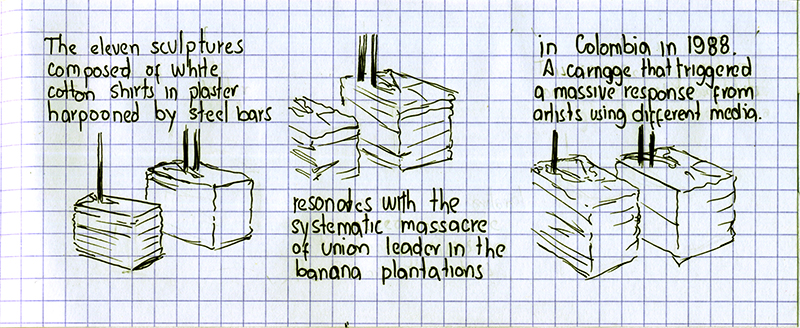 The eleven sculptures
composed of white
cotton shirts in plaster
harpooned by steel bars
resonates with the
systematic massacre
of union leader in the
banana plantations
in Colombia in 1988.
A carnage that triggered
a massive response from
artists using different media.